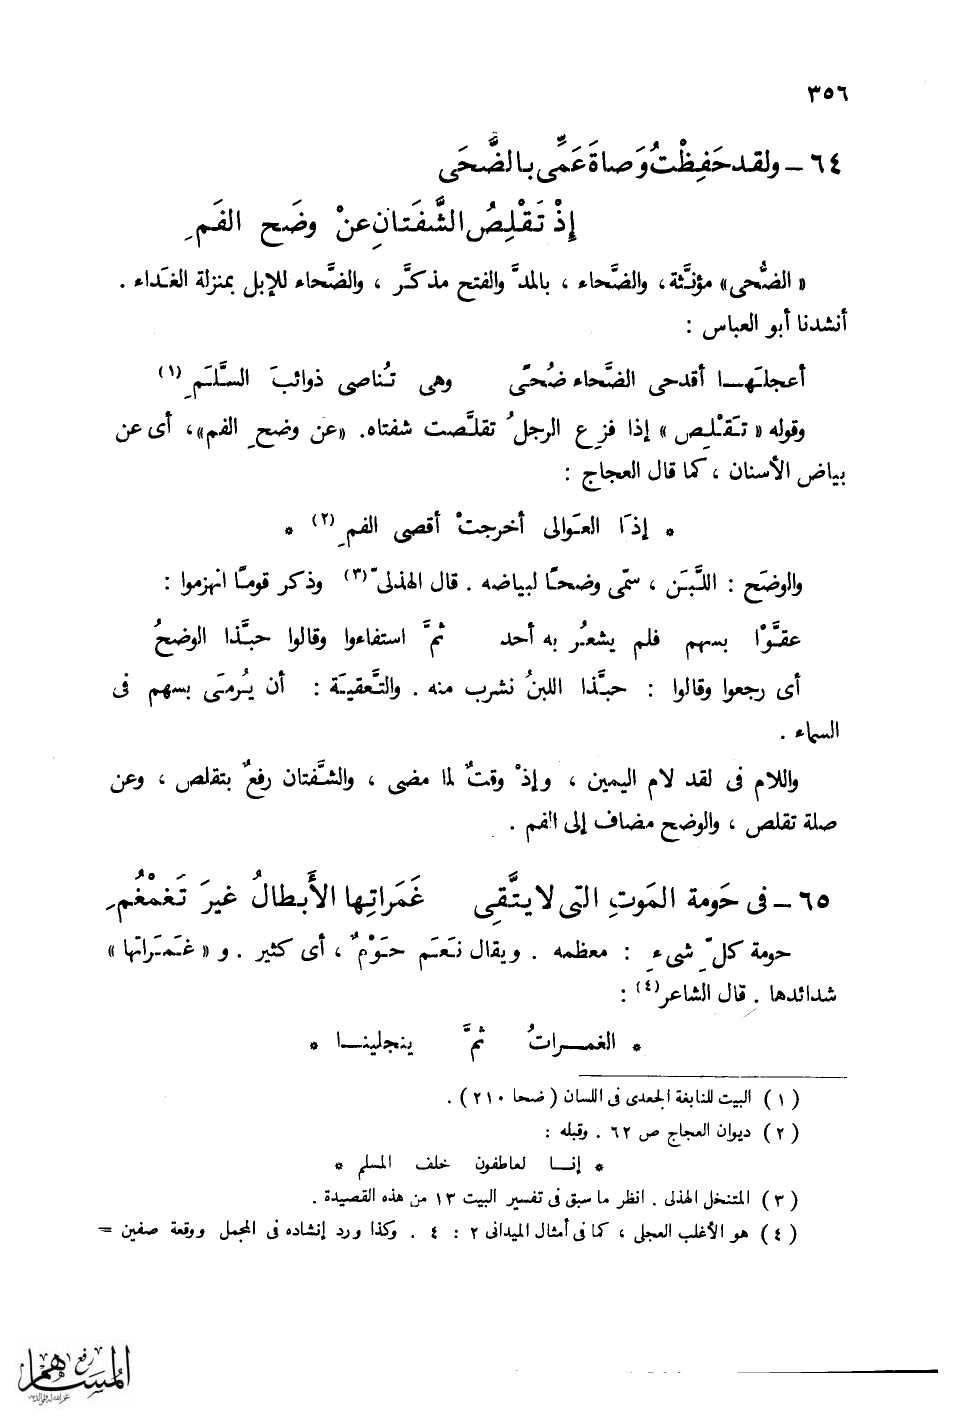 ٣٥٦
٦٤ – ولقد حَفِظْتُ وَصاةَ عَمِّى بالضُّحَى
إِذْ تَقْلِصُ الشَّفَتانِ عنْ وضَح الفَمِ
« الضُّحى» مؤنَّثة، والضَّحاء ، بالمدَّ والفتح مذكَّر ، والضَّحاء للإبل بمنزلة الغَداء .
أنشدنا أبو العباس :
أعجلَها أقدحى الضَّحاء ضُحًى وهى تُناصى ذوائبَ السَّلَمِ (١)
وقوله « تَقْلِص » إذا فزِع الرجلُ تقلَّصت شفتاه. «عن وضحِ الفم»، أى عن
بياض الأسنان ، كما قال العجاج :
* إذَا العَوالى أخرجتْ أقصى الفمِ (٢) *
والوضَح : اللَّبَن ، سمّى وضحًا لبياضه . قال الهذلىّ (٣) وذكر قومًا انهزموا :
عقَّوْا بسهم فلم يشعُر به أحد ثمَّ استفاءوا وقالوا حبَّذا الوضحُ
أى رجعوا وقالوا : حبَّذا اللبنُ نشرب منه . والتَّعقيَة : أن يُرمَى بسهم فى
السماء .
واللام فى لقد لام اليمين ، وإذْ وقتٌ لما مضى ، والشَّفتان رفعٌ بتقلص ، وعن
صلة تقلص ، والوضح مضاف إلى الفم .
٦٥ – فى حَومة المَوتِ التى لا يتَّقِى غَمَراتِها الأَبطالُ غيرَ تَغَمْغُمِ
حومة كلِّ شىءٍ : معظمه . ويقال نَعَم حَوْمٌ ، أى كثير . و « غَمَراتها »
شدائدها . قال الشاعر (٤) :
* الغمراتُ ثمَّ ينجلينا *
( ١ ) البيت للنابغة الجعدى فى اللسان ( ضحا ٢١٠ ) .
( ٢ ) ديوان العجاج ص ٦٢ . وقبله :
* إنا لعاطفون خلف المسلم *
( ٣ ) المتنخل الهذلى . انظر ما سبق فى تفسير البيت ١٣ من هذه القصيدة .
( ٤ ) هو الأغلب العجلى ، كما فى أمثال الميدانى ٢ : ٤ . وكذا ورد إنشاده فى المجمل ووقعة صفين =
رفع
المساهم